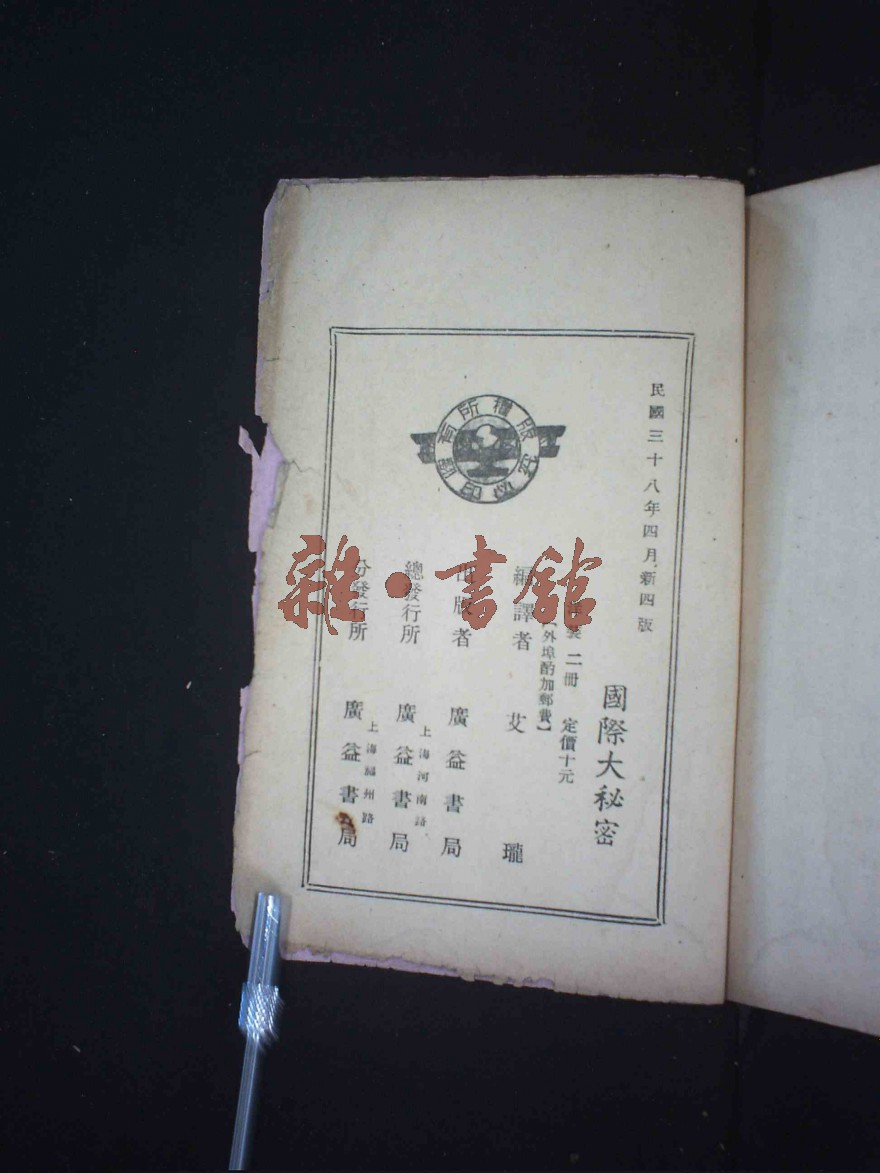 民國三十八年四月新四版
國際大秘密
裝 二冊 定價十元
【外埠酌加郵費】
編譯者 艾瓏
出版者 廣益書局
總發行所 上海河南路 廣益書局
分發行所 上海福州路 廣益書局
版權所有
翻印必究
雜·書館